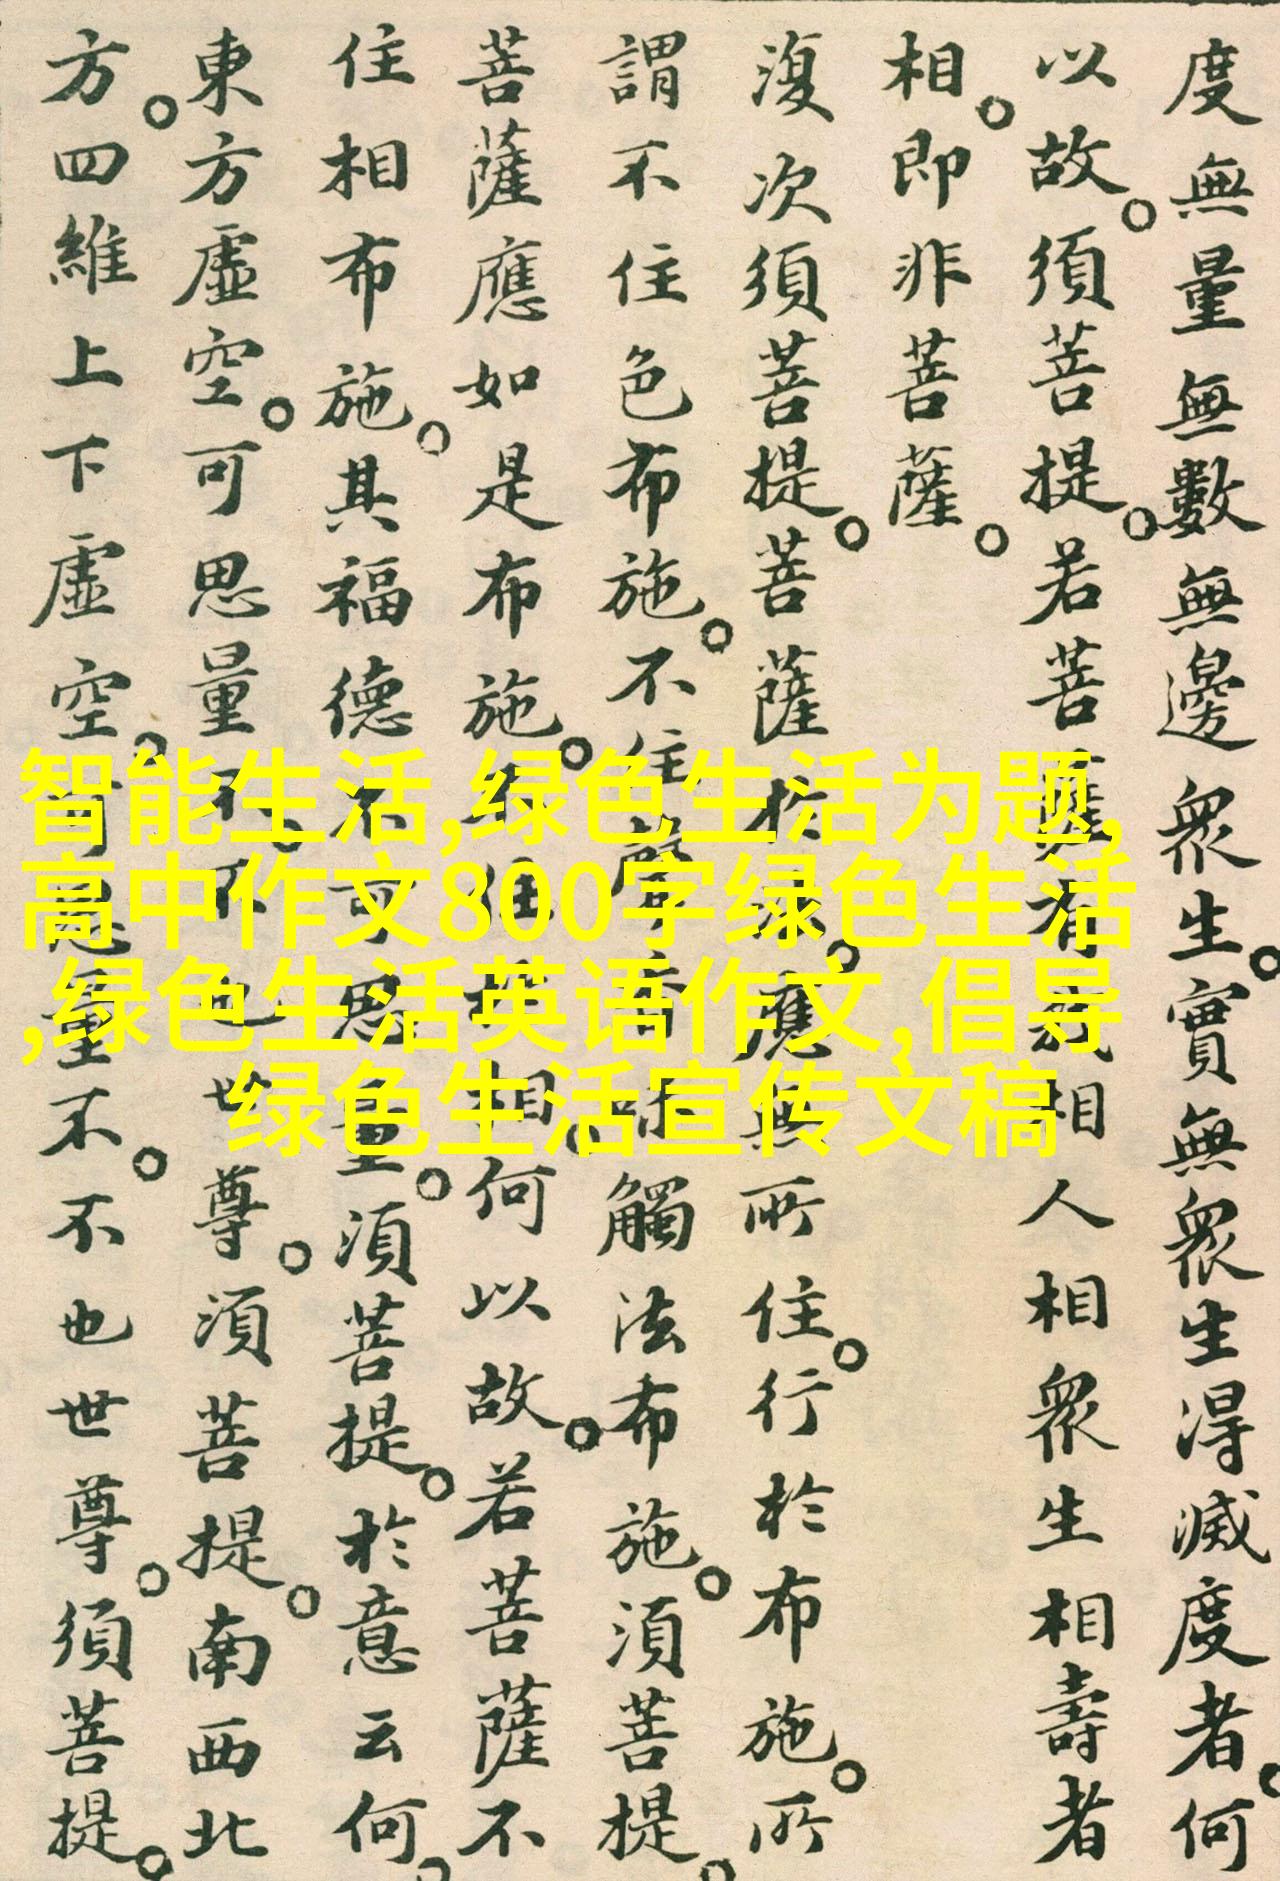 度無量無數無邊衆生。實無衆生得滅度者。何
以故。須菩提。若菩薩有我相人相衆生相壽者
相。即非菩薩。
復次須菩提。菩薩於法。應無所住。行於布施。所
謂不住色布施。不住聲香味觸法布施。須菩提。
菩薩應如是布施。不住於相。何以故。若菩薩不
住相布施。其福德不可思量。須菩提。於意云何。
東方虛空。可思量不。不也世尊。須菩提。南西北
方。四維上下虛空。可思量不。不也世尊。須菩提。
智能生活,绿色生活为题,
高中作文800字绿色生活
,绿色生活英语作文,倡导
绿色生活宣传文稿